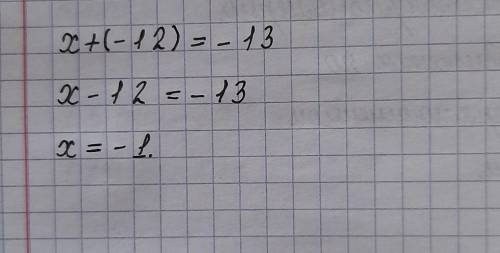 x+(-12)=-13
x-12=-13
x=-1.